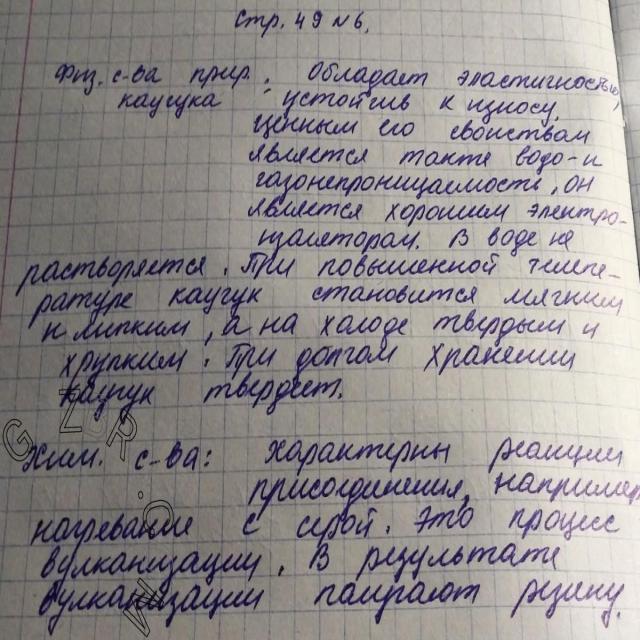 Стр. 49 №6.
Физ. с-ва прир. Обладает эластичностью,
каучука устойчив к износу,
ценным его свойством
является также водо- и
газонепроницаемость, он
является хорошим электро-
изолятором. В воде не
растворяется. При повышенной темпе-
ратуре каучук становится мягким
и липким, а на холоде твердым и
хрупким. При долгом хранении
каучук твердеет.
Хим. с-ва: характерны реакции
присоединения, например
нагревание с серой. Это процесс
вулканизации. В результате
вулканизации получают резину.